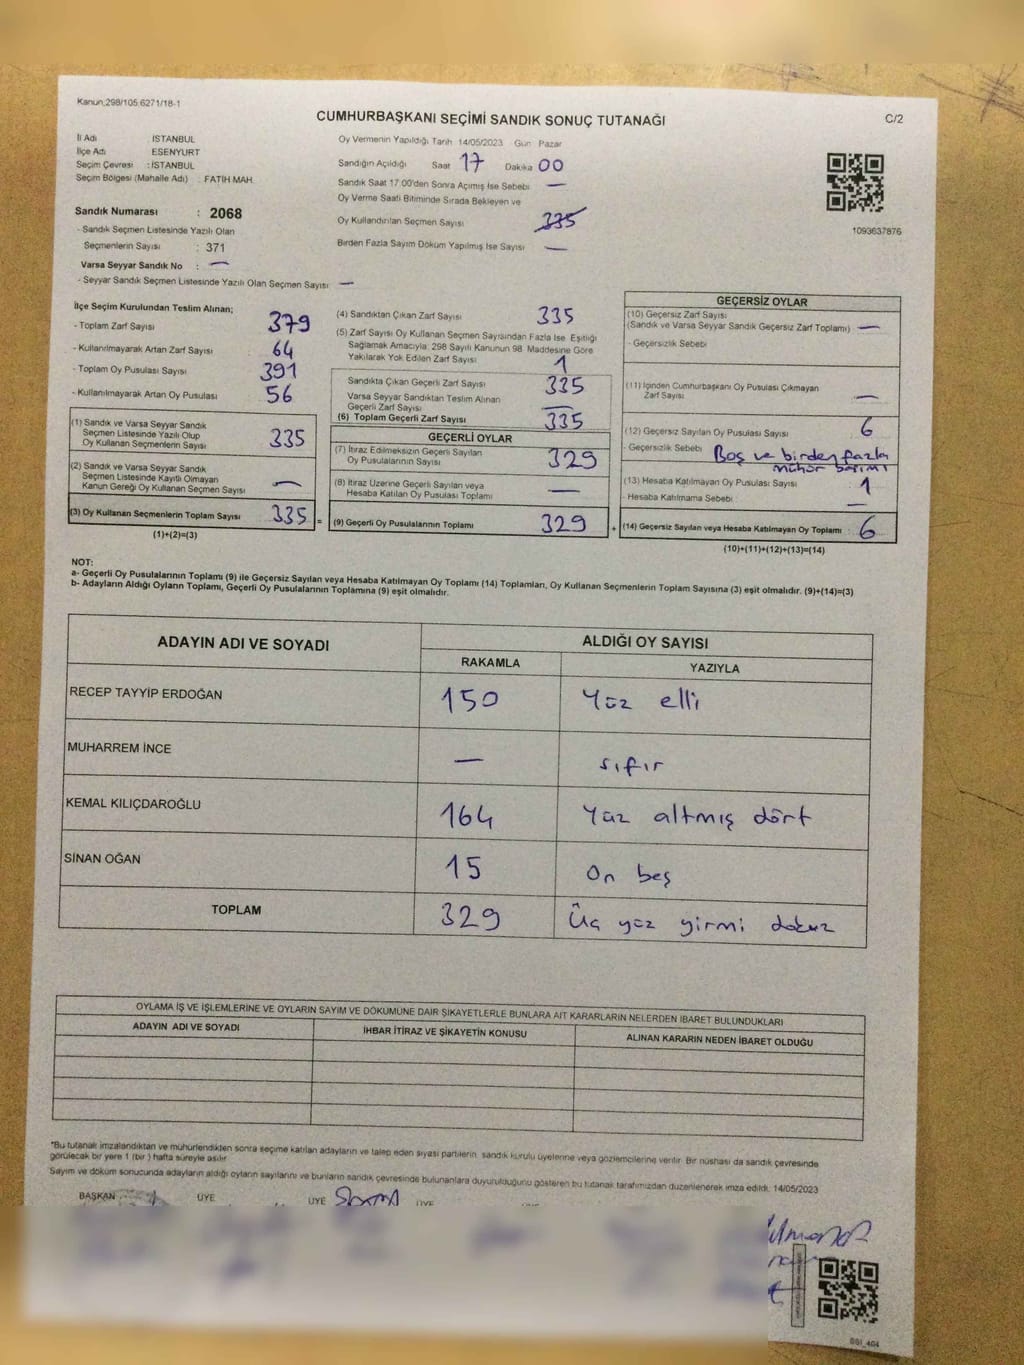 Kanun,298/105,6271/18-1
CUMHURBAŞKANI SEÇİMİ SANDIK SONUÇ TUTANAĞI
C/2
İl Adı : İSTANBUL
İlçe Adı : ESENYURT
Seçim Çevresi : İSTANBUL
Seçim Bölgesi (Mahalle Adı) : FATİH MAH.
Sandık Numarası : 2068
- Sandık Seçmen Listesinde Yazılı Olan
Seçmenlerin Sayısı : 371
Varsa Seyyar Sandık No : —
- Seyyar Sandık Seçmen Listesinde Yazılı Olan Seçmen Sayısı —
Oy Vermenin Yapıldığı Tarih 14/05/2023 Gün Pazar
Sandığın Açıldığı Saat 17 Dakika 00
Sandık Saat 17:00'den Sonra Açılmış İse Sebebi —
Oy Verme Saati Bitiminde Sırada Bekleyen ve
Oy Kullandırılan Seçmen Sayısı 335
Birden Fazla Sayım Döküm Yapılmış İse Sayısı —
1093637876
İlçe Seçim Kurulundan Teslim Alınan;
- Toplam Zarf Sayısı 379
- Kullanılmayarak Artan Zarf Sayısı 64
- Toplam Oy Pusulası Sayısı 391
- Kullanılmayarak Artan Oy Pusulası 56
(1) Sandık ve Varsa Seyyar Sandık
Seçmen Listesinde Yazılı Olup
Oy Kullanan Seçmenlerin Sayısı 335
(2) Sandık ve Varsa Seyyar Sandık
Seçmen Listesinde Kayıtlı Olmayan
Kanun Gereği Oy Kullanan Seçmen Sayısı —
(3) Oy Kullanan Seçmenlerin Toplam Sayısı 335 =
(1)+(2)=(3)
(4) Sandıktan Çıkan Zarf Sayısı 335
(5) Zarf Sayısı Oy Kullanan Seçmen Sayısından Fazla İse, Eşitliği
Sağlamak Amacıyla; 298 Sayılı Kanunun 98. Maddesine Göre
Yakılarak Yok Edilen Zarf Sayısı 1
Sandıkta Çıkan Geçerli Zarf Sayısı 335
Varsa Seyyar Sandıktan Teslim Alınan
Geçerli Zarf Sayısı —
(6) Toplam Geçerli Zarf Sayısı 335
GEÇERLİ OYLAR
(7) İtiraz Edilmeksizin Geçerli Sayılan
Oy Pusulalarının Sayısı 329
(8) İtiraz Üzerine Geçerli Sayılan veya
Hesaba Katılan Oy Pusulası Toplamı —
(9) Geçerli Oy Pusulalarının Toplamı 329 +
GEÇERSİZ OYLAR
(10) Geçersiz Zarf Sayısı
(Sandık ve Varsa Seyyar Sandık Geçersiz Zarf Toplamı) —
- Geçersizlik Sebebi
(11) İçinden Cumhurbaşkanı Oy Pusulası Çıkmayan
Zarf Sayısı —
(12) Geçersiz Sayılan Oy Pusulası Sayısı 6
- Geçersizlik Sebebi Boş ve birden fazla
mühür basımı
(13) Hesaba Katılmayan Oy Pusulası Sayısı 1
- Hesaba Katılmama Sebebi —
(14) Geçersiz Sayılan veya Hesaba Katılmayan Oy Toplamı 6
(10)+(11)+(12)+(13)=(14)
NOT:
a- Geçerli Oy Pusulalarının Toplamı (9) ile Geçersiz Sayılan veya Hesaba Katılmayan Oy Toplamı (14) Toplamları, Oy Kullanan Seçmenlerin Toplam Sayısına (3) eşit olmalıdır. (9)+(14)=(3)
b- Adayların Aldığı Oyların Toplamı, Geçerli Oy Pusulalarının Toplamına (9) eşit olmalıdır.
ADAYIN ADI VE SOYADI ALDIĞI OY SAYISI
RAKAMLA YAZIYLA
RECEP TAYYİP ERDOĞAN 150 Yüz elli
MUHARREM İNCE — sıfır
KEMAL KILIÇDAROĞLU 164 Yüz altmış dört
SİNAN OĞAN 15 On beş
TOPLAM 329 Üç yüz yirmi dokuz
OYLAMA İŞ VE İŞLEMLERİNE VE OYLARIN SAYIM VE DÖKÜMÜNE DAİR ŞİKAYETLERLE BUNLARA AİT KARARLARIN NELERDEN İBARET BULUNDUKLARI
ADAYIN ADI VE SOYADI İHBAR İTİRAZ VE ŞİKAYETİN KONUSU ALINAN KARARIN NEDEN İBARET OLDUĞU
*Bu tutanak imzalandıktan ve mühürlendikten sonra seçime katılan adayların ve talep eden siyasi partilerin, sandık kurulu üyelerine veya gözlemcilerine verilir. Bir nüshası da sandık çevresinde
görülecek bir yere 1 (bir ) hafta süreyle asılır.
Sayım ve döküm sonucunda adayların aldığı oyların sayılarını ve bunların sandık çevresinde bulunanlara duyurulduğunu gösteren bu tutanak tarafımızdan düzenlenerek imza edildi. 14/05/2023
BAŞKAN ÜYE ÜYE ÜYE